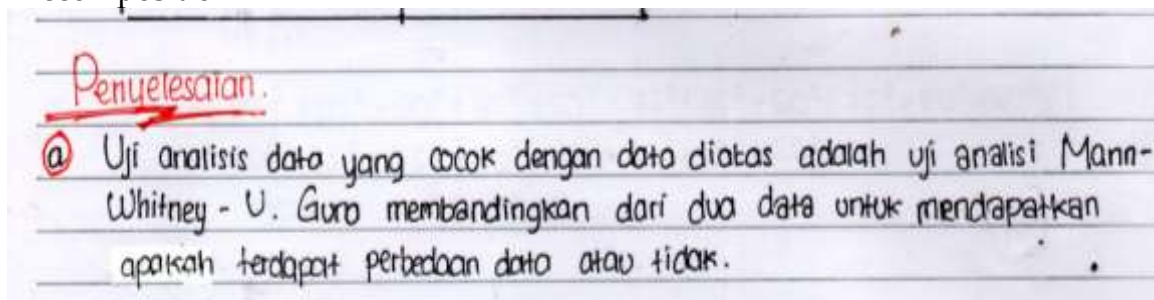 Penyelesaian.
a Uji analisis data yang cocok dengan data diatas adalah uji analisi Mann-
Whitney - U. Guro membandingkan dari dua data untuk mendapatkan
apakah terdapat perbedaan data atau tidak.